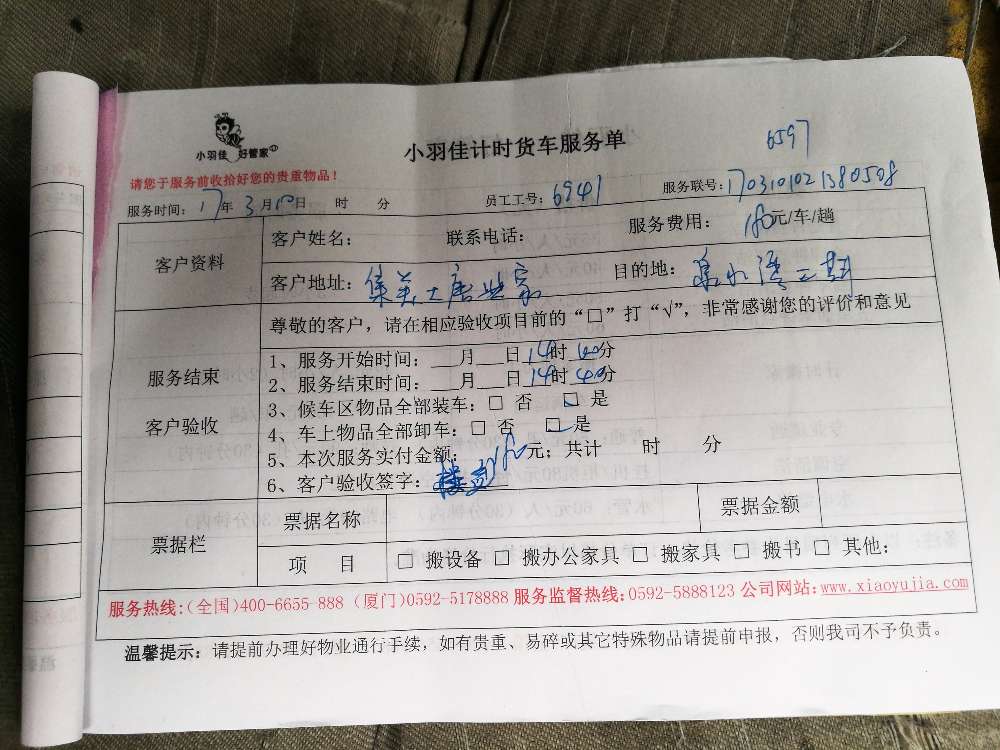 小羽佳 好管家
小羽佳计时货车服务单
6597
请您于服务前收拾好您的贵重物品！
服务时间：17年 3月10日 时 分 员工工号：6941 服务联号：1703101021380508
客户资料
客户姓名： 联系电话： 服务费用：180元/车/趟
客户地址：集美大唐世家 目的地：泉水湾二期
服务结束
客户验收
尊敬的客户，请在相应验收项目前的“□”打“√”，非常感谢您的评价和意见
1、服务开始时间：___月___日14时40分
2、服务结束时间：___月___日14时40分
3、候车区物品全部装车：□ 否 □ 是
4、车上物品全部卸车：□ 否 □ 是
5、本次服务实付金额：180元；共计 时 分
6、客户验收签字：
票据栏
票据名称 票据金额
项 目 □ 搬设备 □ 搬办公家具 □ 搬家具 □ 搬书 □ 其他：
服务热线:(全国)400-6655-888 (厦门)0592-5178888 服务监督热线:0592-5888123 公司网站:www.xiaoyujia.com
温馨提示：请提前办理好物业通行手续，如有贵重、易碎或其它特殊物品请提前申报，否则我司不予负责。